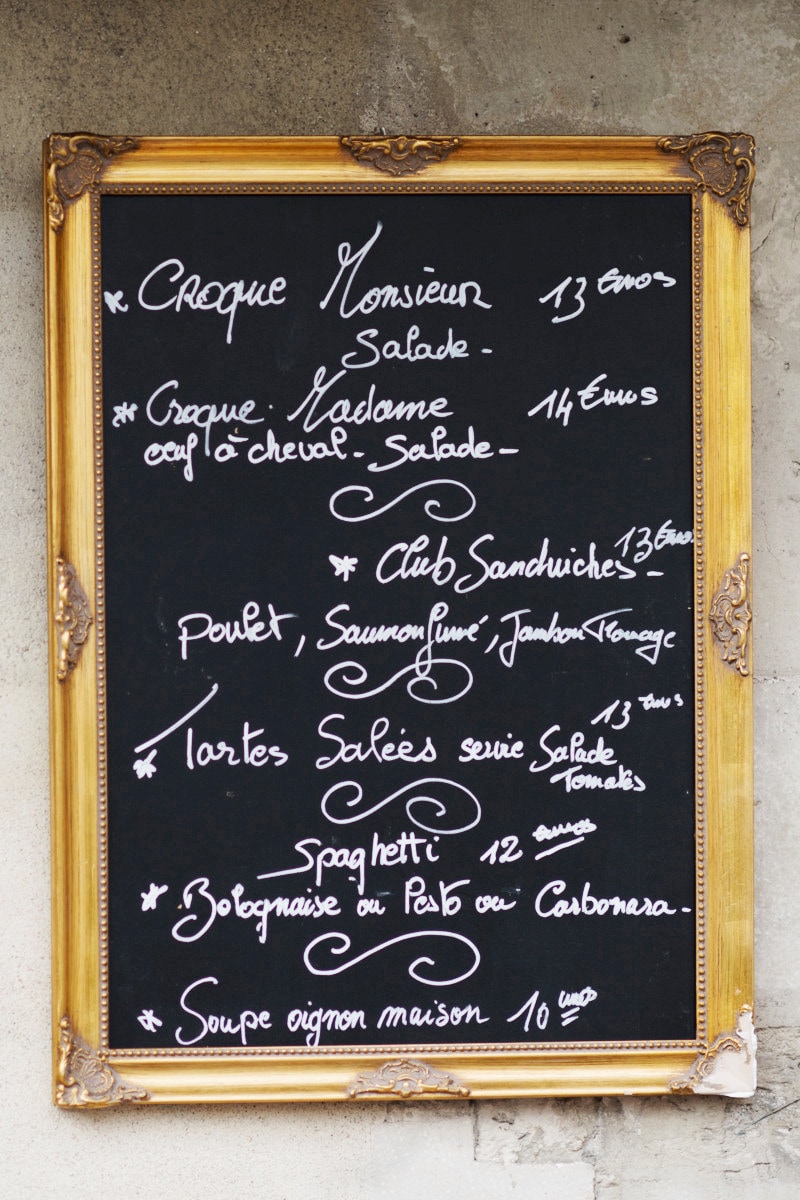 * Croque Monsieur 13 Euros
Salade -
* Croque Madame 14 Euros
œuf à cheval - Salade -
* Club Sandwiches - 13 Euros
Poulet, Saumon fumé, Jambon Fromage
* Tartes Salées servie Salade 13 euros
Tomates
Spaghetti 12 euros
* Bolognaise ou Pesto ou Carbonara -
* Soupe oignon maison 10 euros